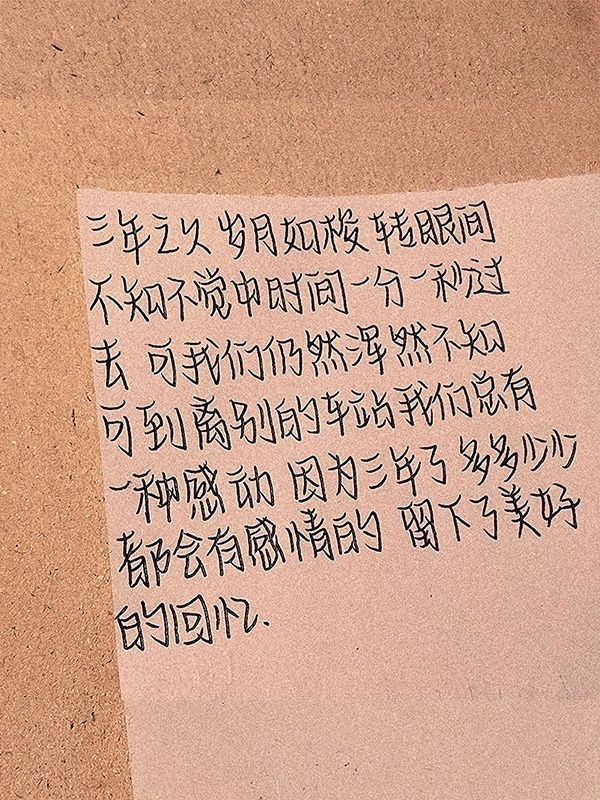 三年之久 岁月如梭 转眼间
不知不觉中时间一分一秒过
去 可我们仍然浑然不知
可到离别的车站我们总有
一种感动 因为三年了 多多少少
都会有感情的 留下了美好
的回忆.